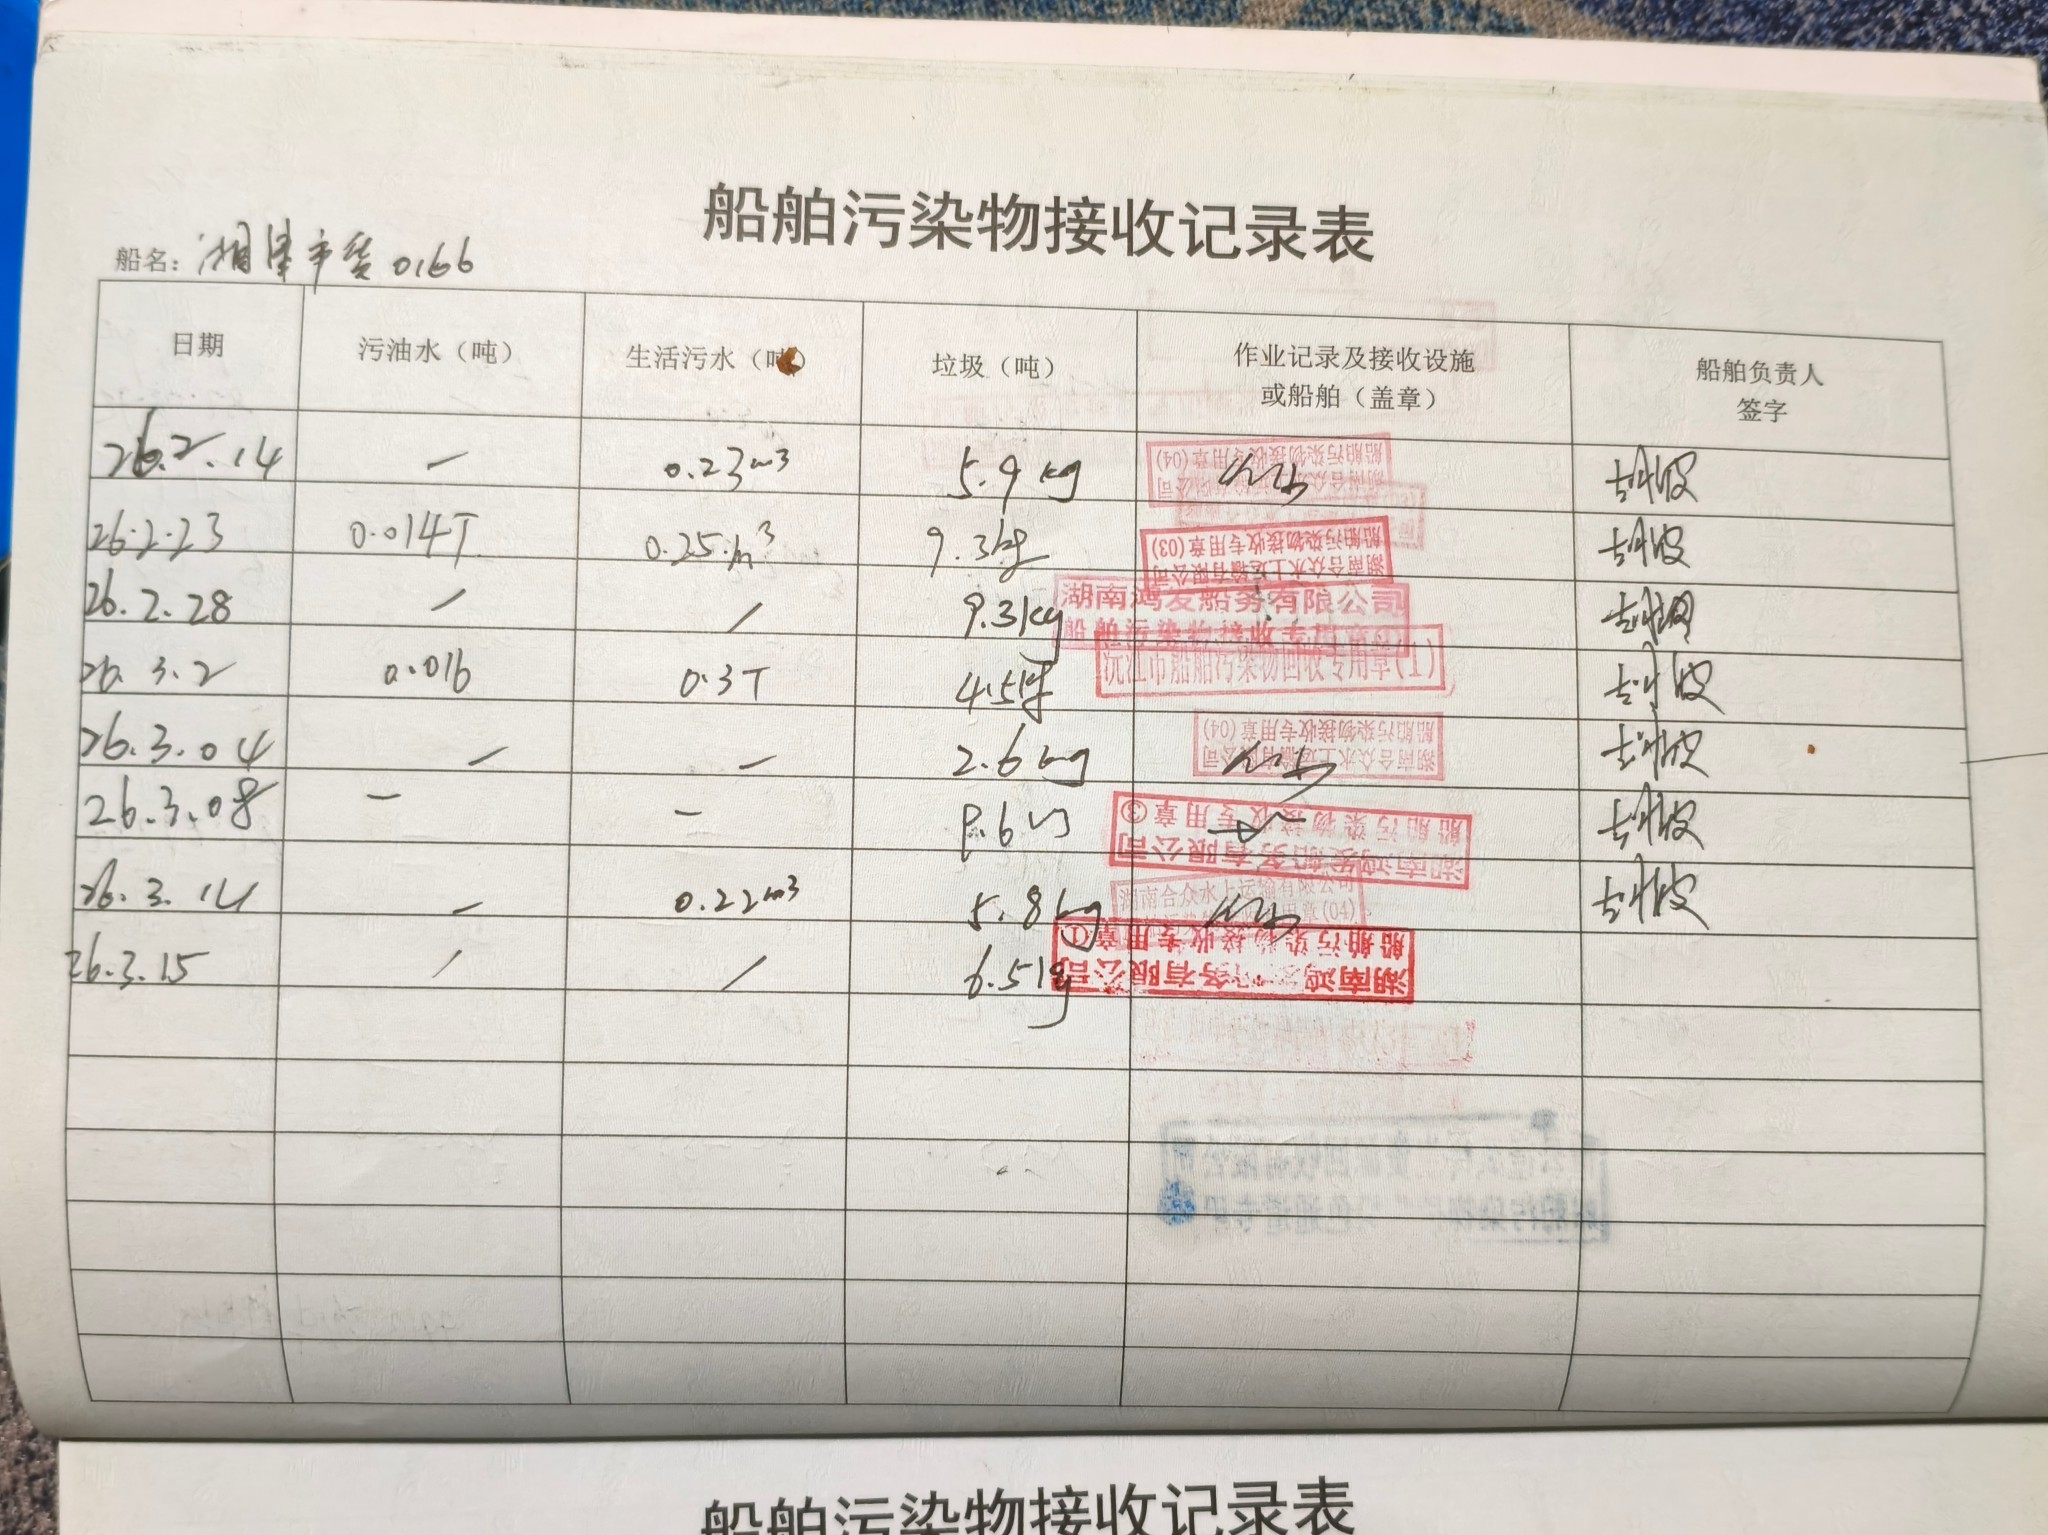 船舶污染物接收记录表
船名: 湘 市货0166
日期 污油水（吨） 生活污水（吨） 垃圾（吨） 作业记录及接收设施或船舶（盖章） 船舶负责人签字
26.2.14 — 0.23m³ 5.9kg 湖南合众水上运输有限公司 船舶污染物接收专用章(04)
26.2.23 0.014T 0.25m³ 9.3kg 湖南合众水上运输有限公司 船舶污染物接收专用章(03)
26.2.28 / / 9.3kg 湖南鸿发船务有限公司 船舶污染物接收专用章①
26.3.2 0.016 0.3T 4.5kg 沅江市船舶污染物回收专用章(1)
26.3.04 — — 2.6kg 湖南合众水上运输有限公司 船舶污染物接收专用章(04)
26.3.08 — — 8.6 湖南鸿发船务有限公司 船舶污染物接收专用章③
26.3.14 — 0.22m³ 5.8kg 湖南合众水上运输有限公司 用章(04)
26.3.15 / / 6.5kg 湖南鸿 务有限公司 船舶污染物接收专用章①
船舶污染物接收记录表